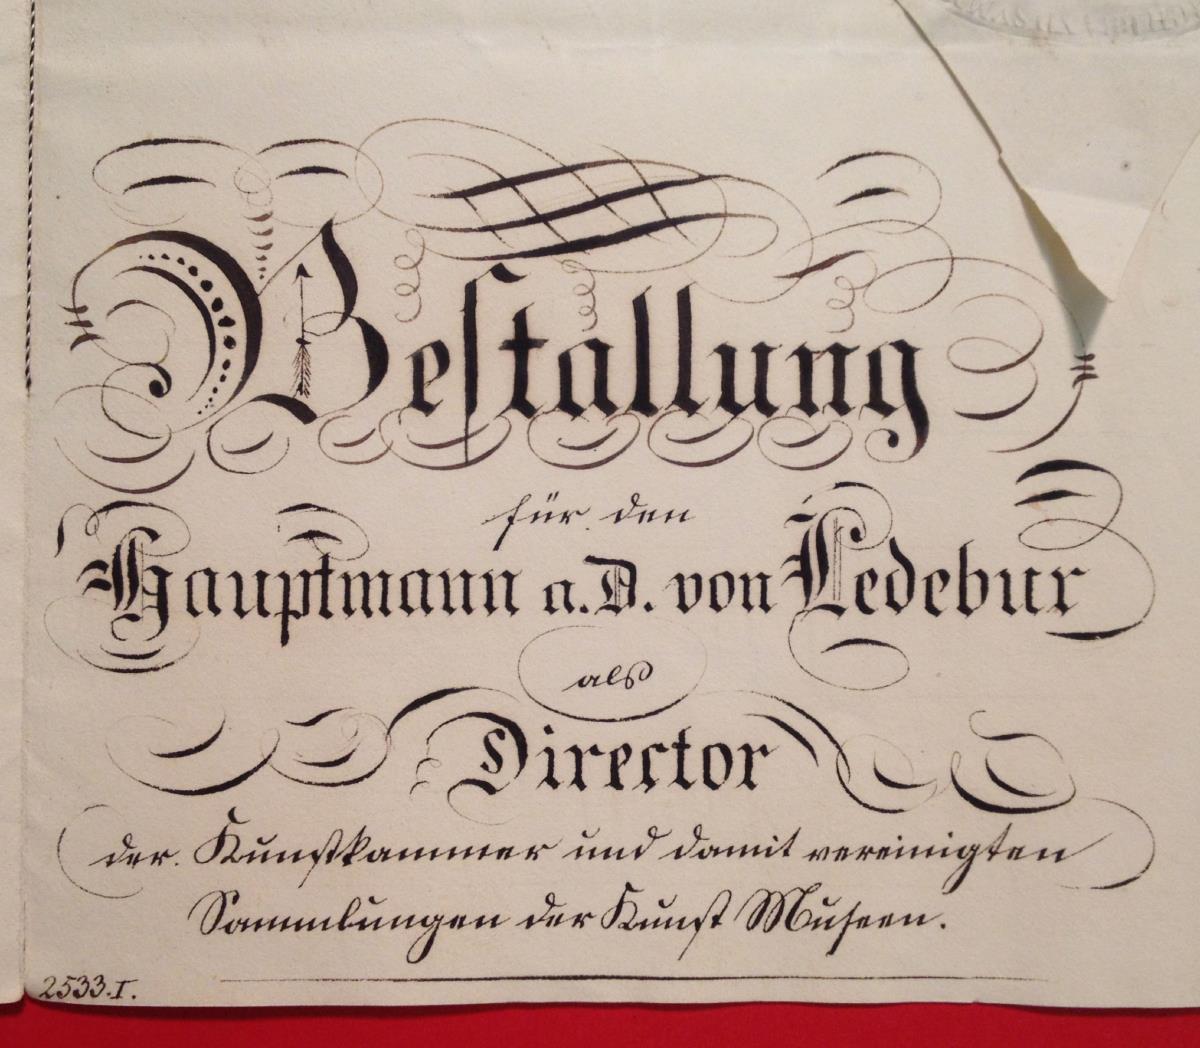 Bestallung
für den
Hauptmann a. D. von Ledebur
als
Director
der Kunstkammer und damit vereinigten
Sammlungen der Kunst Museen.
2533.I.